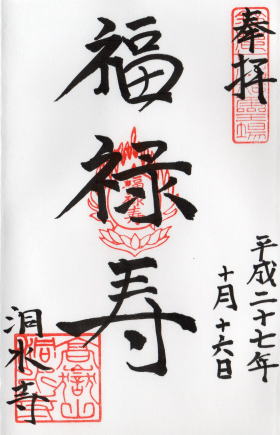 奉拝
平成二十七年
十月十六日
福禄寿
洞水寺
高嶽山